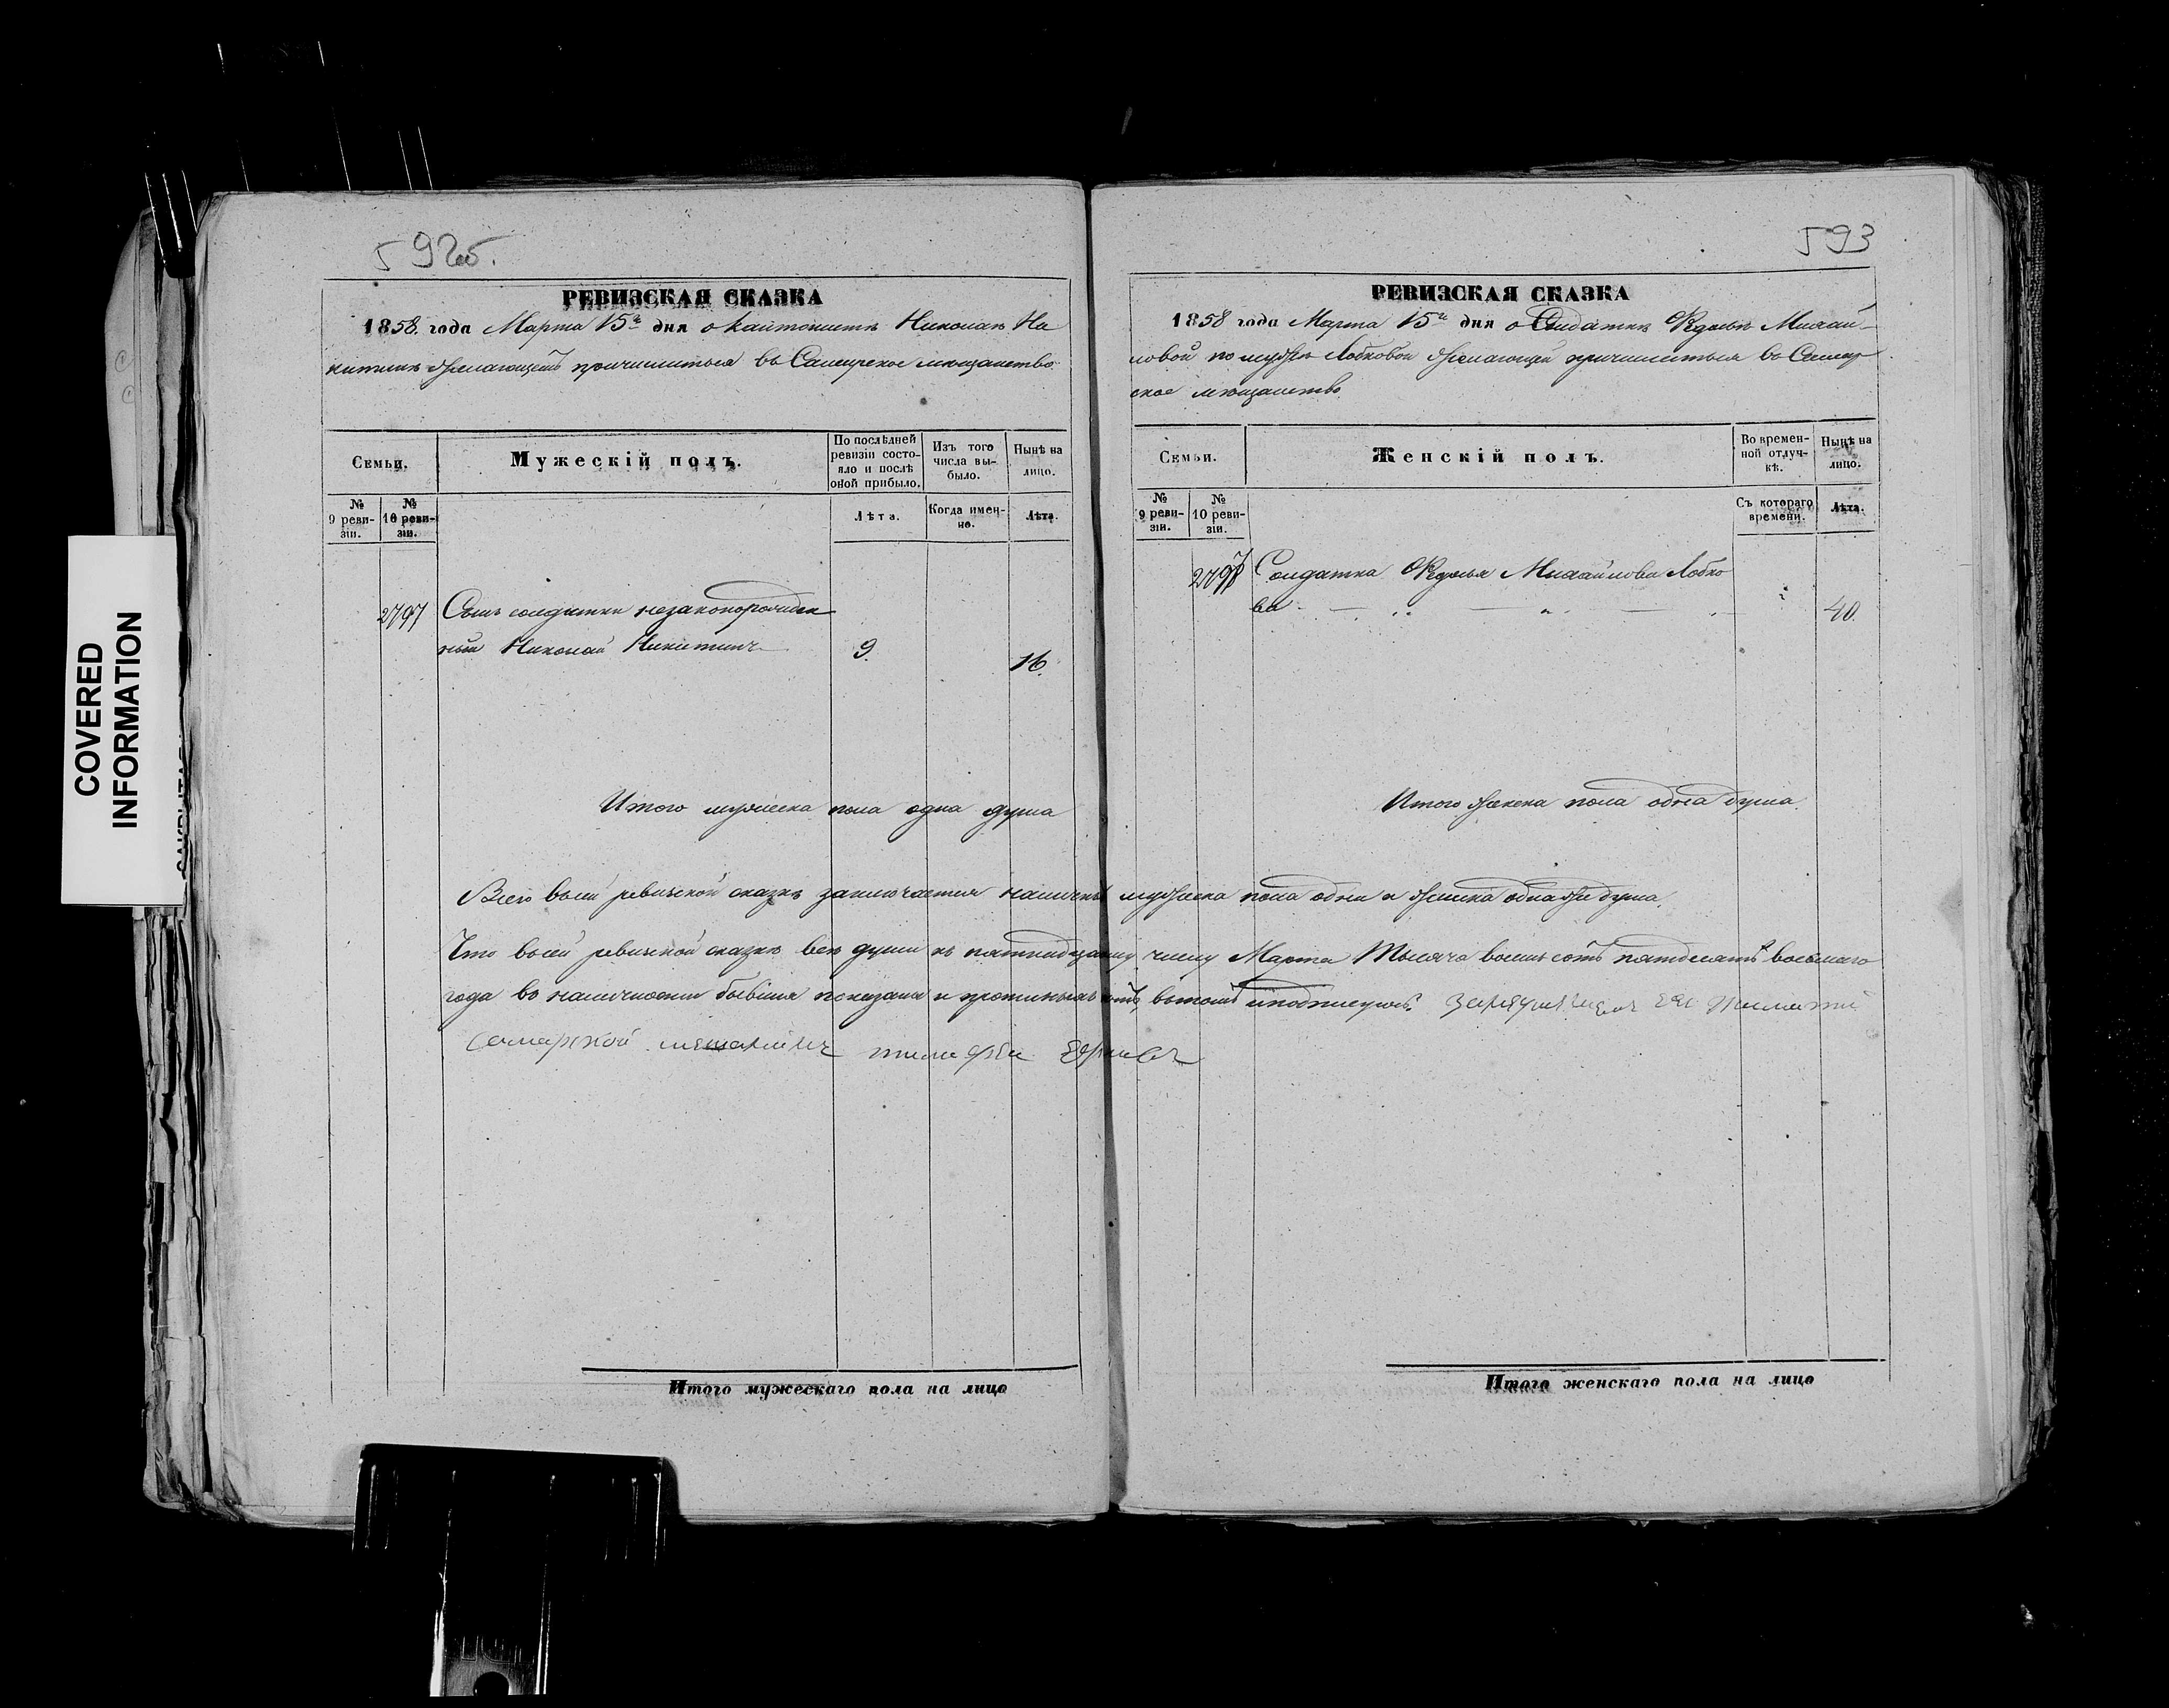 592об.
РЕВИЗСКАЯ СКАЗКА
1858 года Марта 15го дня о кантонистѣ Николаѣ Ни
китинѣ желающемъ причислиться въ Самарское мѣщанство
Семьи.
Мужескій полъ.
По послѣдней ревизіи состояло и послѣ оной прибыло.
Изъ того числа выбыло.
Нынѣ на лицо.
№ 9 ревизіи.
№ 10 ревизіи.
Лѣта.
Когда именно.
Лѣта.
2797 Сынъ солдатки незаконорожден
ный Николай Никитинъ 9. 16.
Итого мужеска пола одна душа
593
РЕВИЗСКАЯ СКАЗКА
1858 года Марта 15го дня о Солдаткѣ Михай-
ловой по мужѣ Лобковой желающей причислиться въ Самар
ское мѣщанство
Семьи.
Женскій полъ.
Во временной отлучкѣ.
Нынѣ на лицо.
№ 9 ревизіи.
№ 10 ревизіи.
Съ котораго времени.
Лѣта.
2797 Солдатка Михайлова Лобко
ва 40.
Итого женска пола одна душа.
Всего въ сей ревизской сказкѣ заключается наличныхъ мужеска пола одна и женска одна же душа.
Что въ сей ревизской сказкѣ всѣ души къ пятнадцатому числу Марта Тысяча восемь сотъ пятдесятъ восьмаго
года въ наличности бывшія показаны и прописныхъ нѣтъ, въ томъ и подписуюсь.
Самарской мешанинъ тимофеи
Итого мужескаго пола на лицо
Итого женскаго пола на лицо
COVERED
INFORMATION